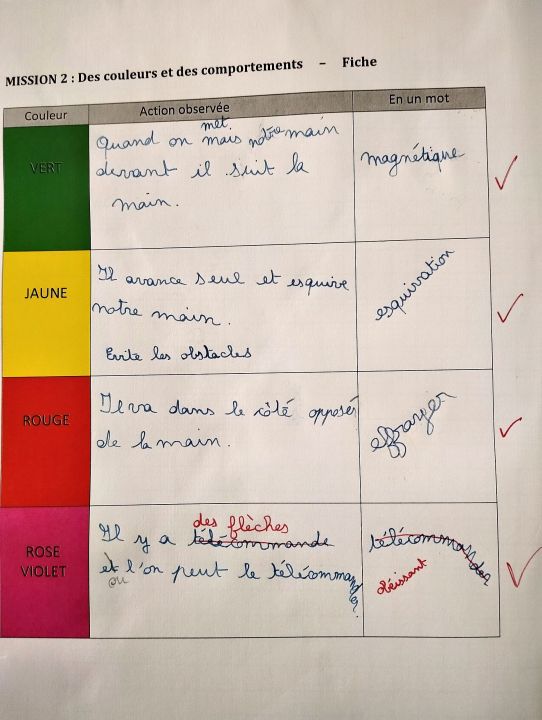 MISSION 2 : Des couleurs et des comportements – Fiche
Couleur Action observée En un mot
VERT
met.
Quand on mais notre main
devant il suit la
main.
magnétique
JAUNE
Il avance seul et esquive
notre main.
Evite les obstacles
esquivation
ROUGE
Il va dans le côté opposés
de la main.
effrayer
ROSE
VIOLET
des flèches
Il y a télécommande
et l'on peut le télécommander.
ou
télécommander
obéissant